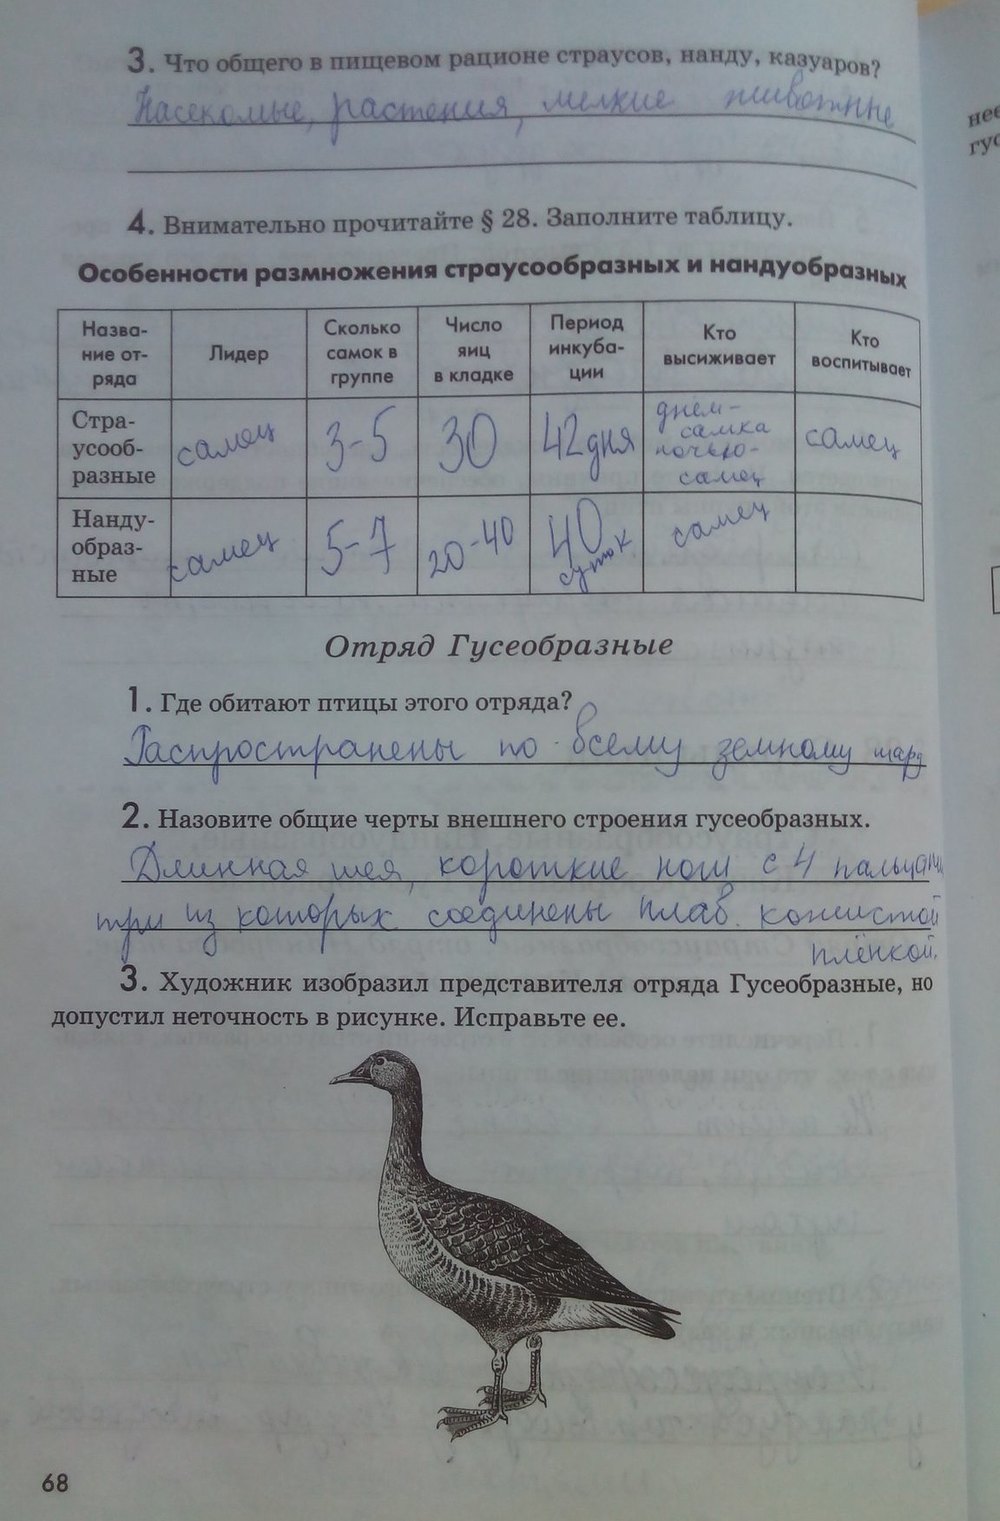 3. Что общего в пищевом рационе страусов, нанду, казуаров?
Насекомые, растения, мелкие животные
4. Внимательно прочитайте § 28. Заполните таблицу.
Особенности размножения страусообразных и нандуобразных
Назва-
ние от-
ряда
Лидер
Сколько
самок в
группе
Число
яиц
в кладке
Период
инкуба-
ции
Кто
высиживает
Кто
воспитывает
Стра-
усооб-
разные
самец
3-5
30
42 дня
днем-
самка
ночью-
самец
самец
Нанду-
образ-
ные
самец
5-7
20-40
40
суток
самец
Отряд Гусеобразные
1. Где обитают птицы этого отряда?
Распространены по всему земному шару
2. Назовите общие черты внешнего строения гусеобразных.
Длинная шея, короткие ноги с 4 пальцами
три из которых соединены плав. кожистой
плёнкой.
3. Художник изобразил представителя отряда Гусеобразные, но
допустил неточность в рисунке. Исправьте ее.
68
нее
гус